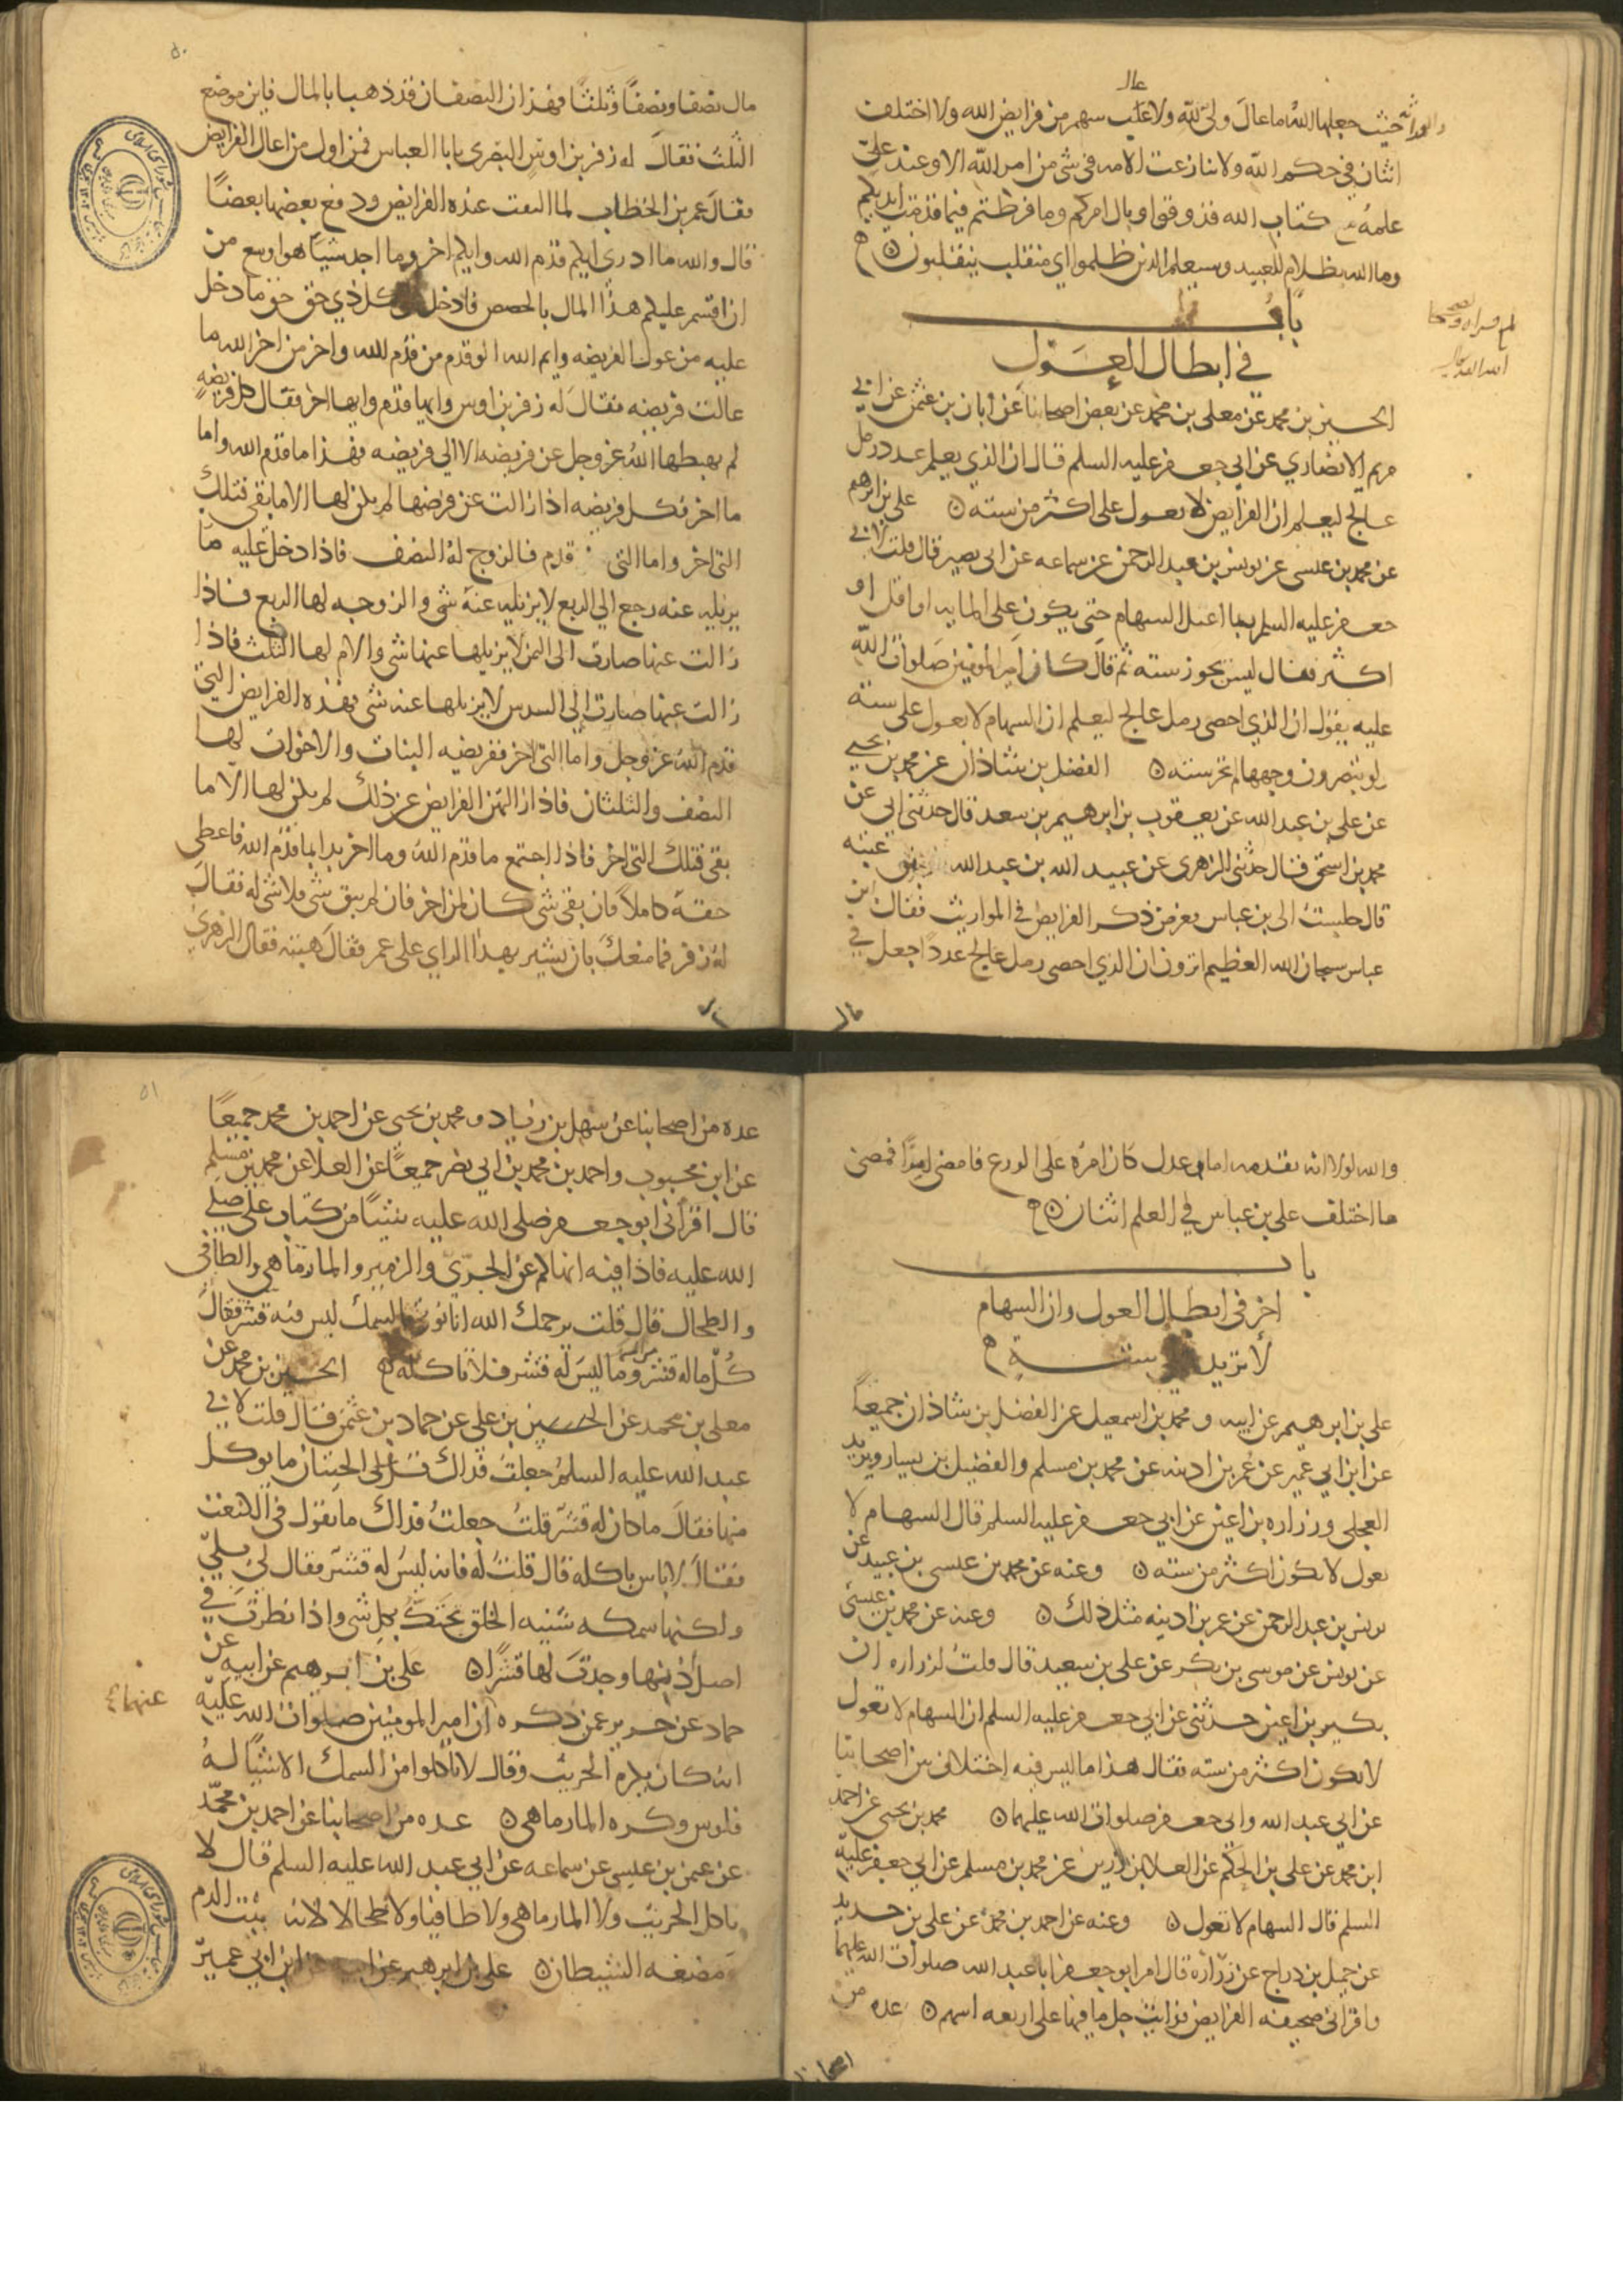 عال
والوراثه حيث جعلها الله ما عال ولي لله ولا عال سهم من فرايض الله ولا اختلف
اثنان في حكم الله ولا تنازعت الامه في شى من امر الله الا وعند علي
علمه من كتاب الله فذوقوا وبال امركم وما فرطتم فيما قدمت ايديكم
وما الله بظلام للعبيد وسيعلم الذين ظلموا اي منقلب ينقلبون
باب
في ابطال العول
الحسين بن محمد عن معلى بن محمد عن بعض اصحابنا عن ابان بن عثمن عن ابي
مريم الانصاري عن ابي جعفر عليه السلم قال ان الذي يعلم عدد رمل
عالج ليعلم ان الفرايض لا يعول على اكثر من سته علي بن ابرهيم
عن محمد بن عيسى عن يونس بن عبد الرحمن عن سماعه عن ابى بصير قال قلت لابي
جعفر عليه السلم ربما اعيل السهام حتى يكون على المايه او اقل او
اكثر فقال ليس يجوز سته ثم قال كان امير المومنين صلوات الله
عليه يقول ان الذي احصى رمل عالج ليعلم ان السهام لا يعول على سته
لو يبصرون وجهها لم تجز سته الفضل بن شاذان عن محمد بن يحيى
عن علي بن عبد الله عن يعقوب بن ابرهيم بن سعد قال حدثني ابي عن
محمد بن اسحق قال حدثني الزهرى عن عبيد الله بن عبد الله بن عتبه
قال جلست الى بن عباس فعرض ذكر الفرايض في المواريث فقال ابن
عباس سبحان الله العظيم اترون ان الذي احصى رمل عالج عددا جعل في
مال نصفا ونصفا وثلثا فهذان النصفان قد ذهبا بالمال فاين موضع
الثلث فقال له زفر بن اوس البصرى يابا العباس فمن اول من اعال الفرايض
فقال عمر بن الخطاب لما التفت عنده الفرايض ودفع بعضها بعضا
قال والله ما ادرى ايكم قدم الله وايكم اخر وما اجد شيا هو اوسع من
ان اقسم عليكم هذا المال بالحصص فادخل كل ذي حق حق ما دخل
عليه من عول الفريضه وايم الله لو قدم من قدم الله واخر من اخر الله ما
عالت فريضه فقال له زفر بن اوس وايها قدم وايها اخر فقال كل فريضه
لم يهبطها الله عز وجل عن فريضه الا الي فريضه فهذا ما قدم الله واما
ما اخر فكل فريضه اذا زالت عن فرضها لم يكن لها الا ما بقى فتلك
التي اخر واما التي قدم فالزوج له النصف فاذا دخل عليه ما
يزيله عنه رجع الي الربع لا يزيله عنه شى والزوجه لها الربع فاذا
زالت عنها صارت الى الثمن لا يزيلها عنها شى والام لها الثلث فاذا
زالت عنها صارت إلي السدس لا يزيلها عنه شى فهذه الفرايض التي
قدم الله عز وجل واما التي اخر ففريضه البنات والاخوات لها
النصف والثلثان فاذا ازالتهن الفرايض عن ذلك لم يكن لها الا ما
بقى فتلك التي اخر فاذا اجتمع ما قدم الله وما اخر بدا بما قدم الله فاعطى
حقه كاملا فان بقى شى كان لمن اخر فان لم يبق شى فلا شى له فقال
له زفر فما منعك بان تشير بهذا الراي على عمر فقال هبته فقال الزهرى
والله لولا انه تقدمه امام عدل كان امره على الورع فامضى امرا فمضى
ما اختلف على بن عباس في العلم اثنان
باب
اخر في ابطال العول وان السهام
لا تزيد سته
علي بن ابرهيم عن ابيه ومحمد بن اسمعيل عن الفضل بن شاذان جميعا
عن ابن ابي عمير عن عمر بن اذينه عن محمد بن مسلم والفضيل بن يسار وبريد
العجلي وزراره بن اعين عن ابي جعفر عليه السلم قال السهام لا
تعول لا تكون اكثر من سته وعنه عن محمد بن عيسى بن عبيد عن
يونس بن عبد الرحمن عن عمر بن اذينه مثل ذلك وعنه عن محمد بن عيسى
عن يونس عن موسى بن بكر عن علي بن سعيد قال قلت لزراره ان
بكير بن اعين حدثني عن ابي جعفر عليه السلم ان السهام لا تعول
لا تكون اكثر من سته فقال هذا ما ليس فيه اختلاف بين اصحابنا
عن ابي عبد الله وابي جعفر صلوات الله عليهما محمد بن يحيى عن احمد
ابن محمد عن علي بن الحكم عن العلا بن رزين عن محمد بن مسلم عن ابي جعفر عليه
السلم قال السهام لا تعول وعنه عن احمد بن محمد عن علي بن حديد
عن جميل بن دراج عن زراره قال امر ابو جعفر ابا عبد الله صلوات الله عليهما
واقرانى صحيفه الفرايض فرايت جل ما فيها على اربعه اسهم عده من
اصحابنا
عده من اصحابنا عن سهل بن زياد ومحمد بن يحيى عن احمد بن محمد جميعا
عن ابن محبوب واحمد بن محمد بن ابي نصر جميعا عن العلا عن محمد بن مسلم
قال اقراني ابو جعفر صلى الله عليه شيئا من كتاب علي صلى
الله عليه فاذا فيه انهاكم عن الجري والزمير والمارماهي والطافى
والطحال قال قلت يرحمك الله انا نوتى بالسمك ليس فيه قشر فقال
كل ما له قشر من السمك وما ليس له قشر فلا تاكله الحسين بن محمد عن
معلى بن محمد عن الحسين بن علي عن حماد بن عثمن قال قلت لابي
عبد الله عليه السلم جعلت فداك الحيتان ما يوكل
منها فقال ما كان له قشر قلت جعلت فداك ما تقول في الكنعت
فقال لا باس باكله قال قلت له فانه ليس له قشر فقال لي بلي
ولكنها سمكه سيئه الخلق تحتك بكل شى واذا نظرت في
اصل أذنها وجدت لها قشرا علي بن ابرهيم عن ابيه عن
حماد عن حريز عمن ذكره ان امير المومنين صلوات الله عليه
انه كان يكره الجريث وقال لا تاكلوا من السمك الا شيئا له
فلوس وكره المارماهي عده من اصحابنا عن احمد بن محمد
عن عثمن بن عيسى عن سماعه عن ابي عبد الله عليه السلم قال لا
تاكل الجريث ولا المارماهي ولا طافيا ولا طحالا لانه بيت الدم
ومضغه الشيطان علي بن ابرهيم عن ابيه عن ابن ابي عمير